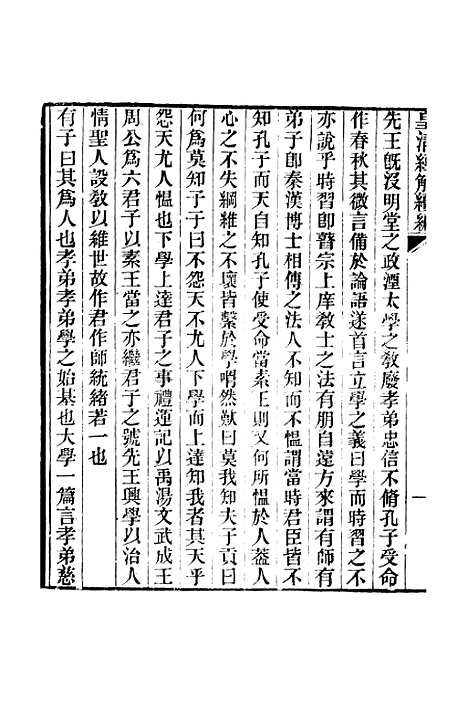 皇淸經解續編
一
先王旣沒明堂之政湮太學之敎廢孝弟忠信不脩孔子受命
作春秋其微言備於論語遂首言立學之義曰學而時習之不
亦說乎時習卽瞽宗上庠敎士之法有朋自遠方來謂有師有
弟子卽秦漢博士相傳之法人不知而不慍謂當時君臣皆不
知孔子而天自知孔子使受命當素王則又何所慍於人蓋人
心之不失綱維之不壞皆繫於學喟然歎曰莫我知夫子貢曰
何爲莫知子子曰不怨天不尤人下學而上達知我者其天乎
怨天尤人慍也下學上達君子之事禮運記以禹湯文武成王
周公爲六君子以素王當之亦繼君子之號先王興學以治人
情聖人設敎以維世故作君作師統緖若一也
有子曰其爲人也孝弟孝弟學之始基也大學一篇言孝弟慈